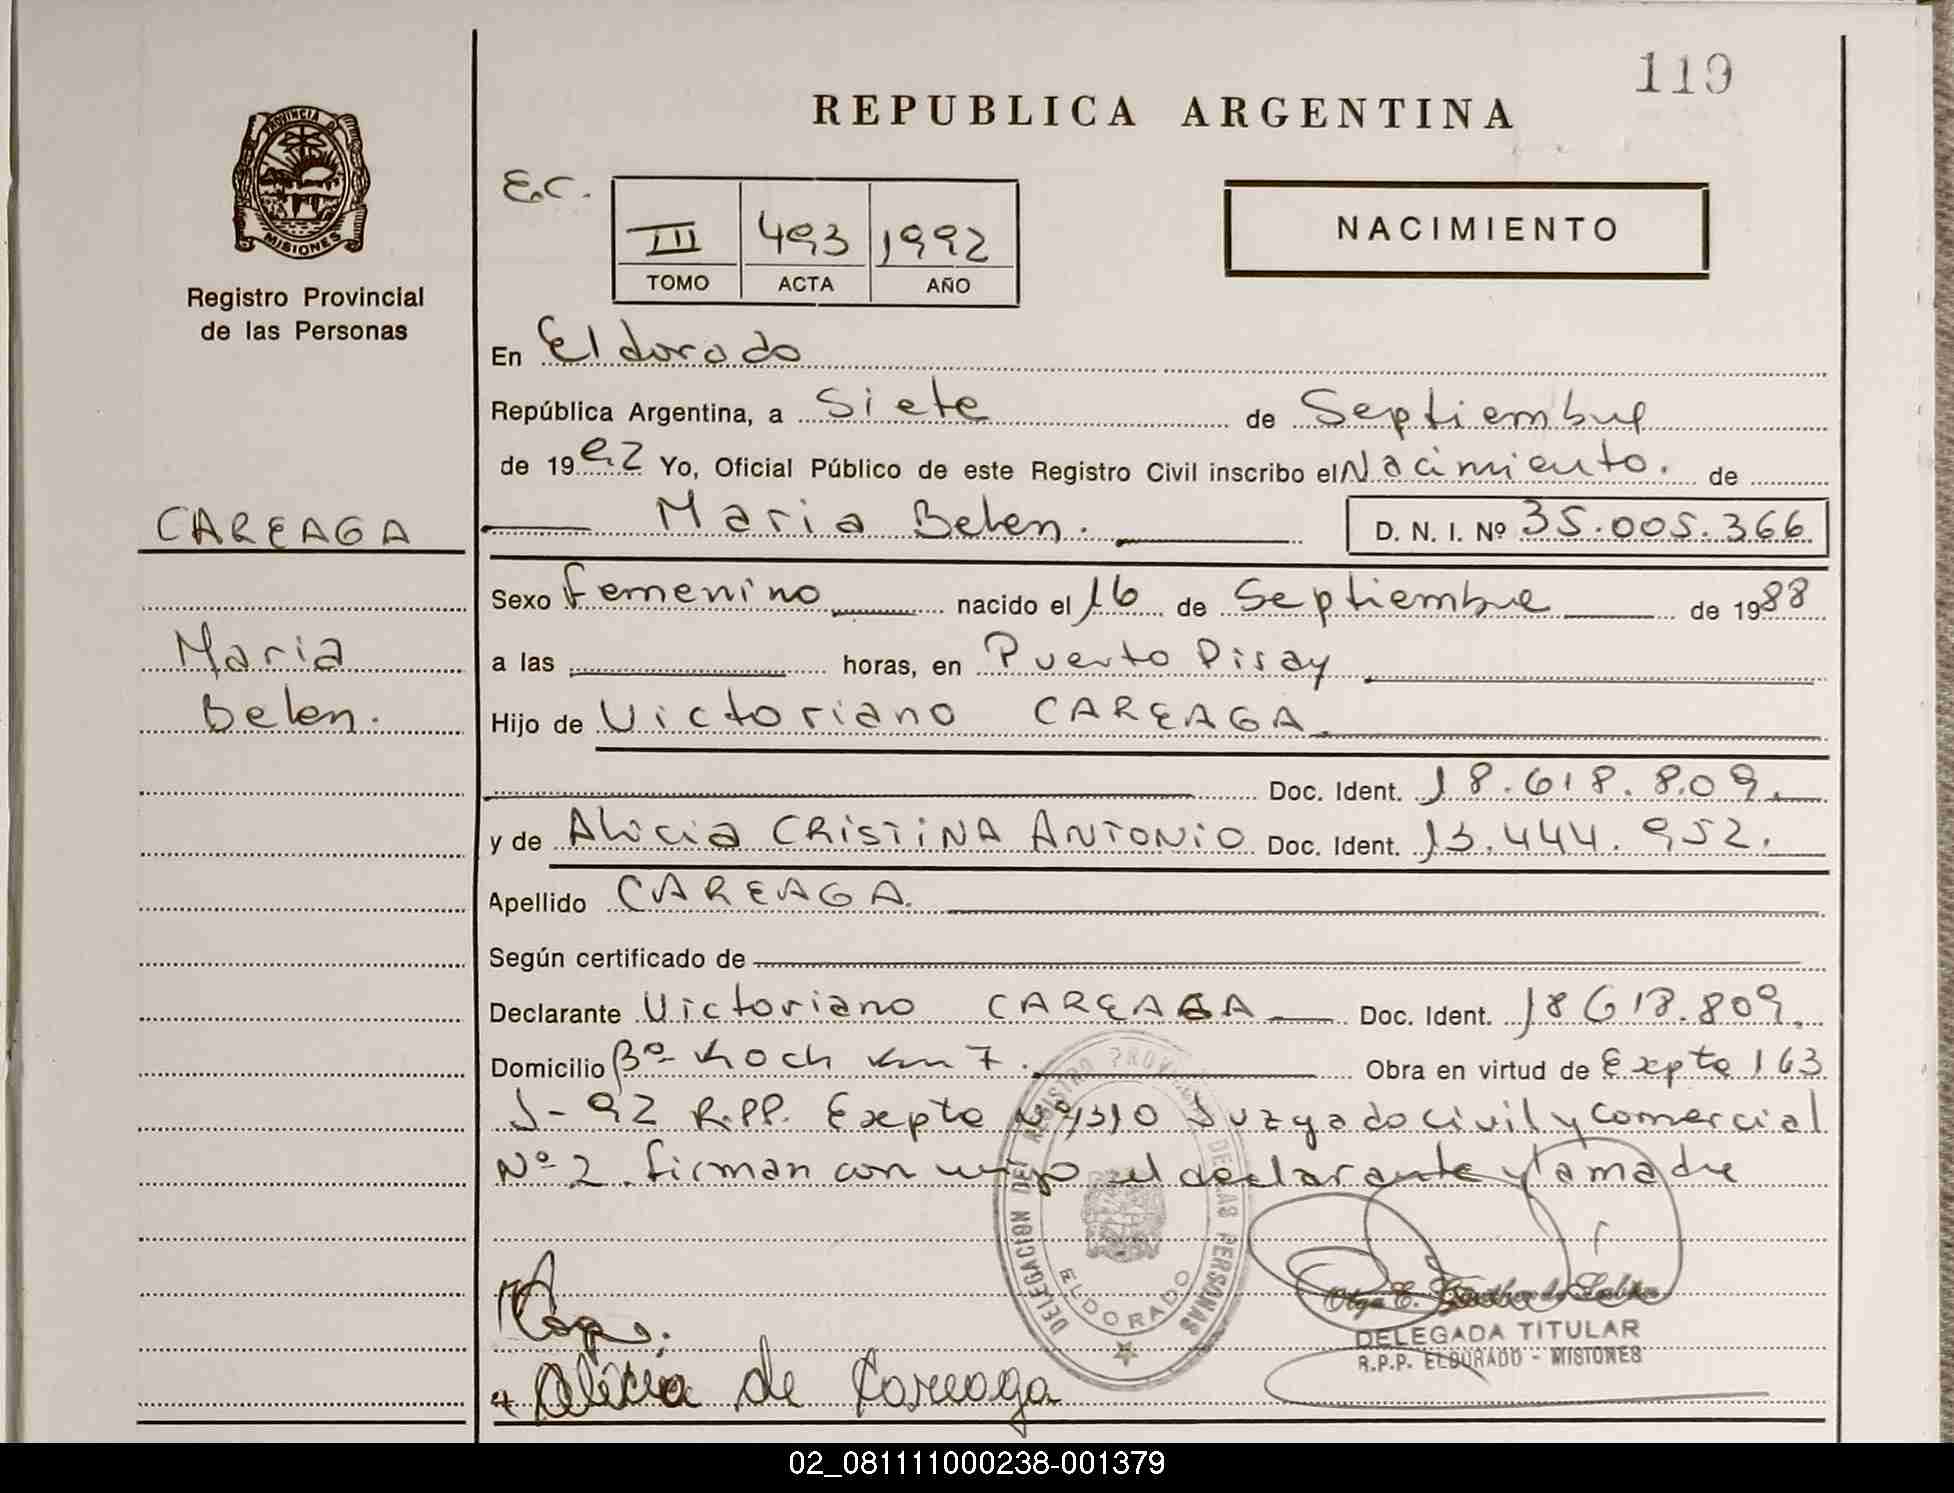 119
REPUBLICA ARGENTINA
PROVINCIA DE
MISIONES
Registro Provincial
de las Personas
E.C.
III 493 1992
TOMO ACTA AÑO
NACIMIENTO
En Eldorado
República Argentina, a Siete de Septiembre
de 1992 Yo, Oficial Público de este Registro Civil inscribo el Nacimiento. de
CAREAGA
Maria Belen. D. N. I. Nº 35.005.366
Sexo femenino nacido el 16 de Septiembre de 1988
Maria
a las horas, en Puerto Piray
Belen.
Hijo de Victoriano CAREAGA
Doc. Ident. 18.618.809.
y de Alicia CRISTINA ANTONIO Doc. Ident. 13.444.952.
Apellido CAREAGA.
Según certificado de
Declarante Victoriano CAREAGA Doc. Ident. 18618.809.
Domicilio Bº Koch Km 7. Obra en virtud de Expte 163
J-92 R.P.P. Expte Nº 1310 Juzgado civil y comercial
Nº 2. firman conmigo el declarante y la madre
DELEGACION DEL REGISTRO PROVINCIAL DE LAS PERSONAS
ELDORADO
Olga E.
DELEGADA TITULAR
R.P.P. ELDORADO - MISIONES
Alicia de Careaga
02_081111000238-001379